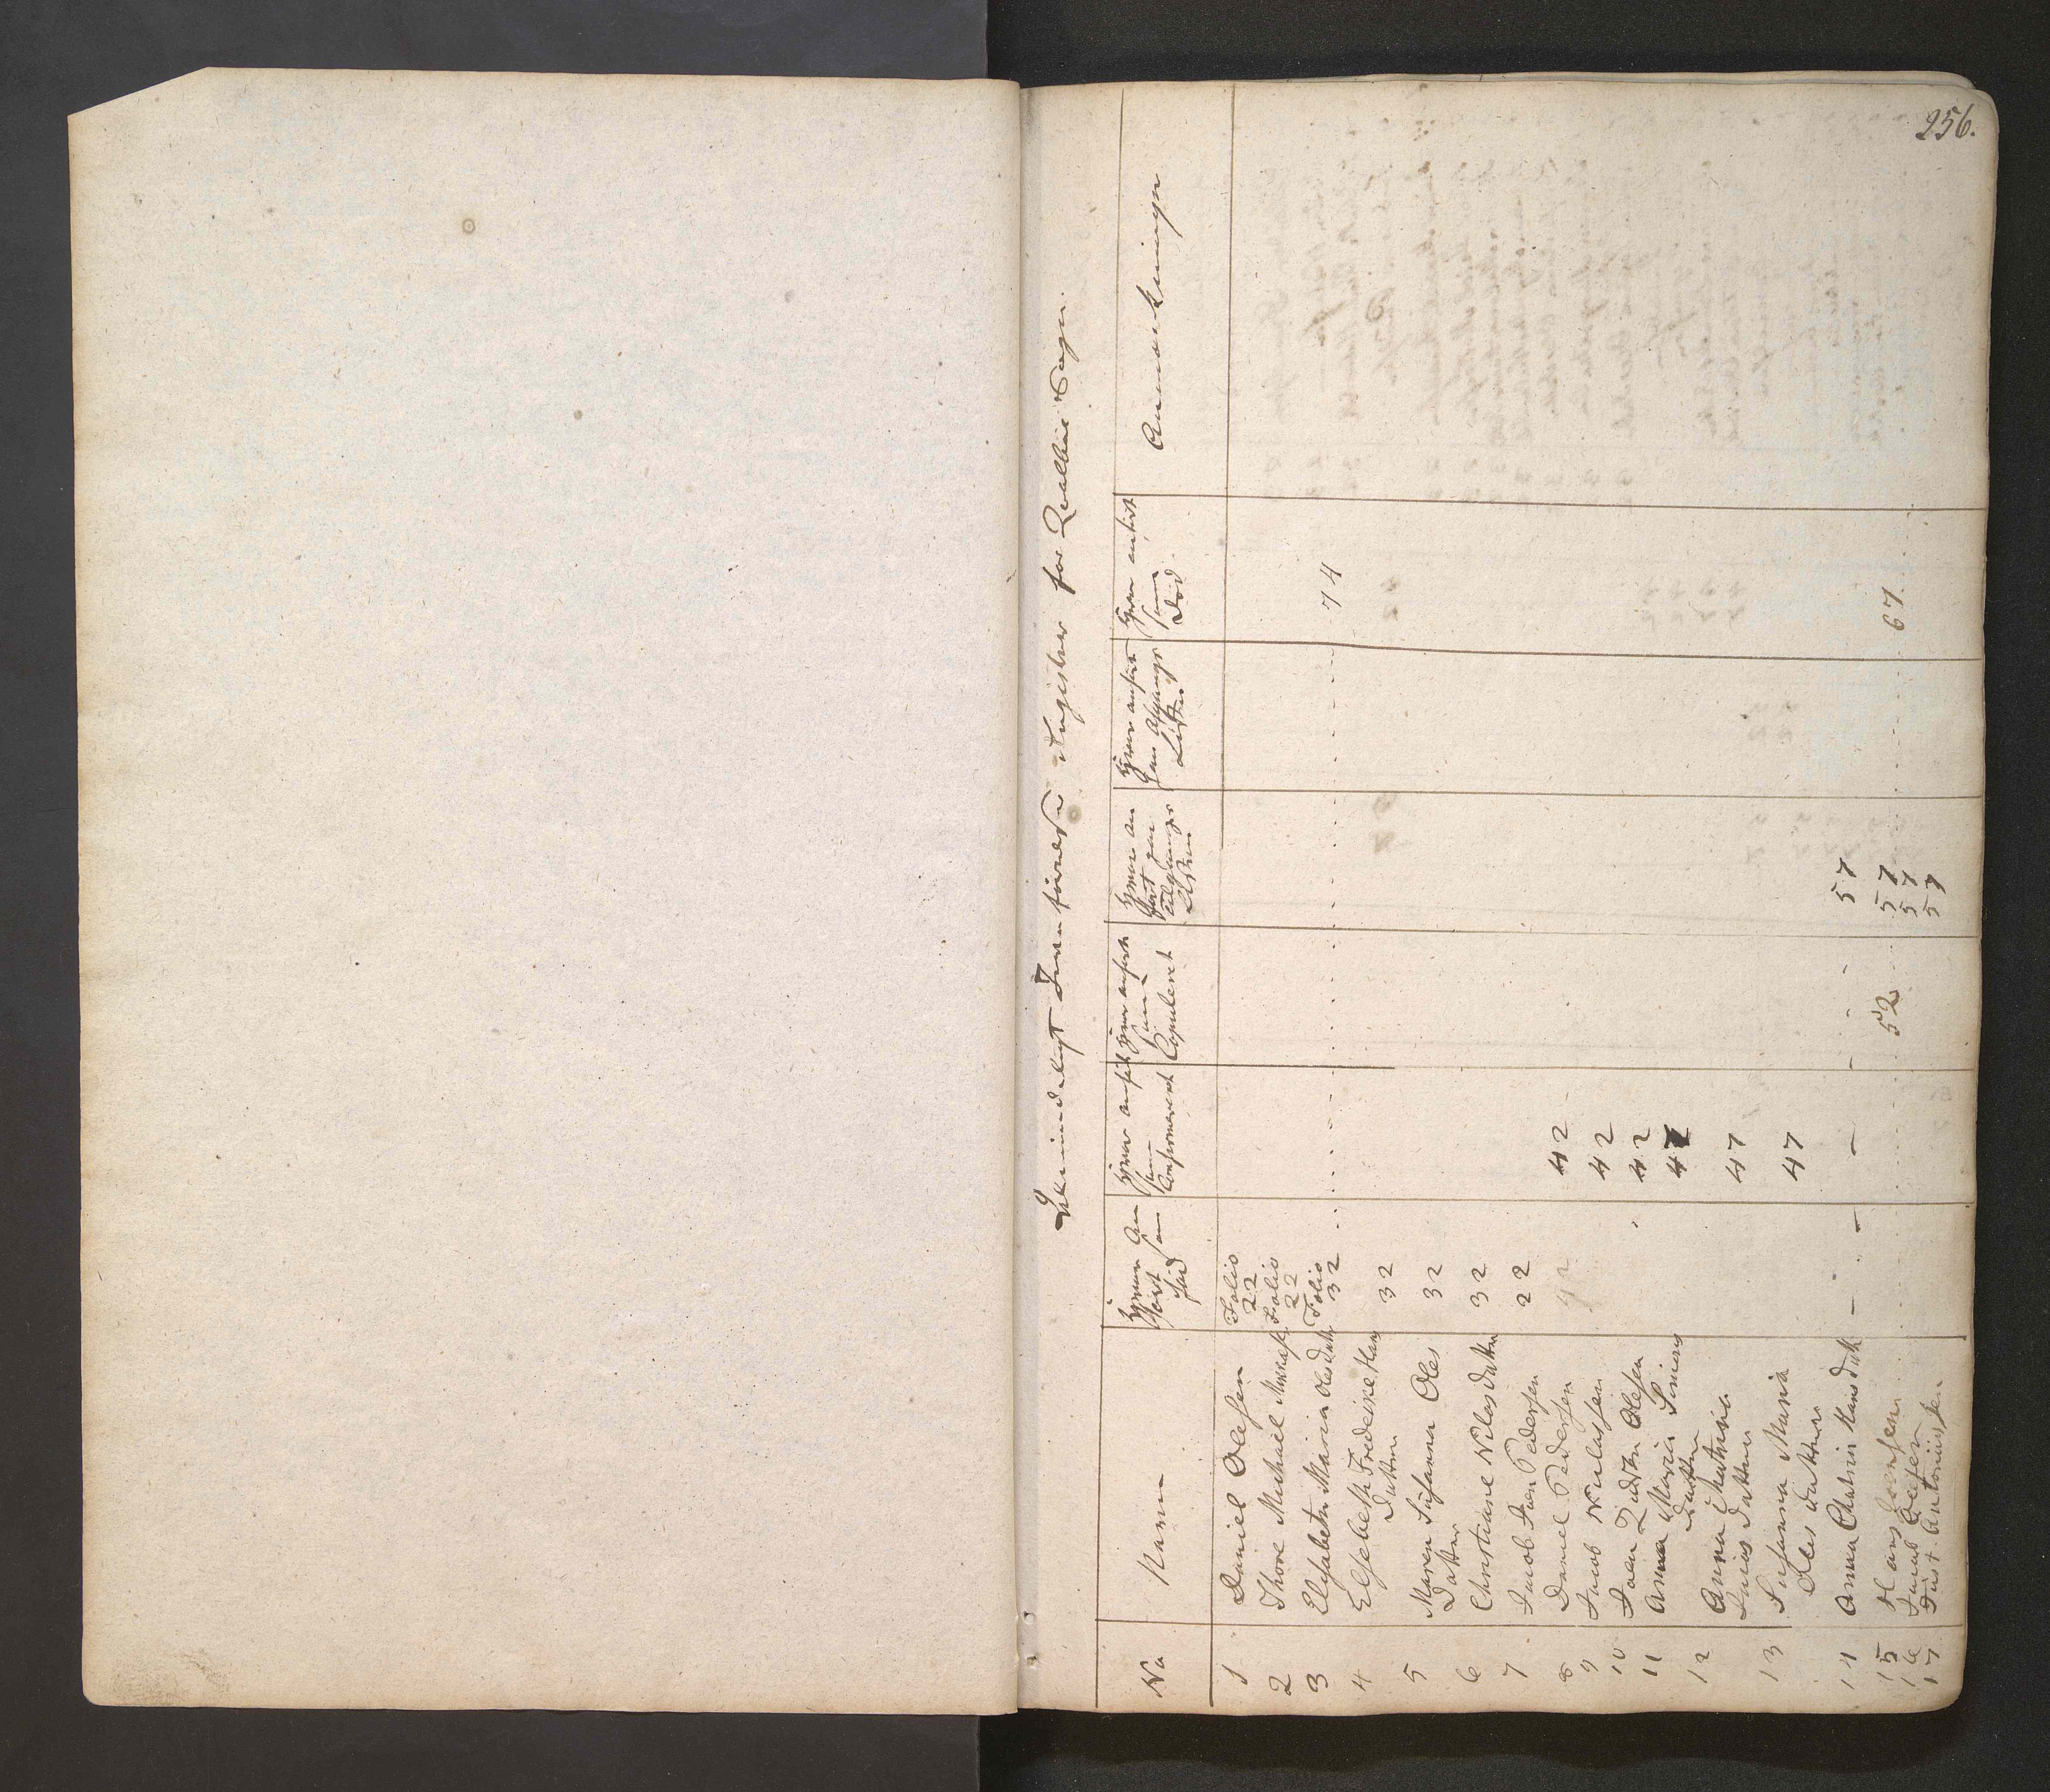 256.
Almindeligt Jevnførelses Register for Qvalbøe Sogn.
No
Navn
Hvor An
ført som
født
Hvor anført
som
Confirmeret
Hvor anført
som
Copuleret
Hvor an
ført paa
Tilgangs
Listen
Hvor anført
paa Afgangs
Listen
Hvor anført
som
Død
Anmærkninger
1 Daniel Olesen Folio 22
2 Thore Michael Folio 22
3 Elisabeth Maria Olesdatter Folio 32 74
4 Elsebeth Frederikke Hans
Datter 32
5 Maren Susanna Oles
Datter 32
6 Christiane Niclasdatter 32
7 Jacob Pedersen 22
8 Daniel Pedersen 42
9 Jacob Niclassen 42
10 Olesen 42
11 Anna Maria Simons
Datter 47
12 Anna Chatrina
datter 47
13 Susanna Maria
Olesdatter 47
14 Anna Chatrin Hansdatt — — — 57
15 Hans Joensen 52 57 67.
16 Jacob Olesen 57
17 Just Antoniussen 57